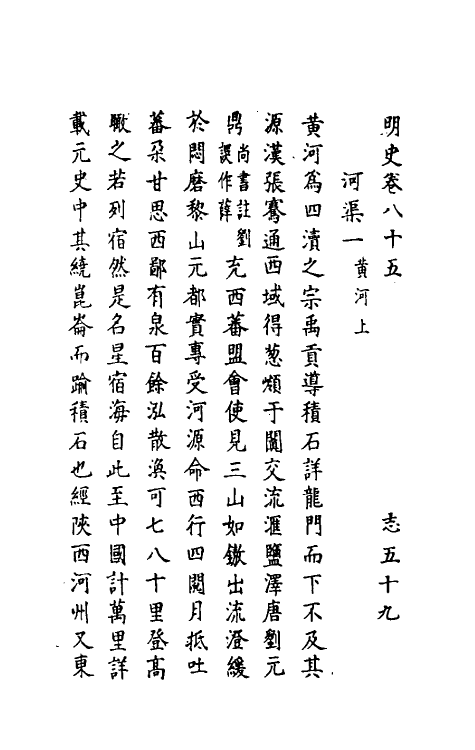 明史卷八十五 志五十九
河渠一 黄河上
黄河為四瀆之宗禹貢導積石詳龍門而下不及其
源漢張騫通西域得葱嶺于闐交流滙鹽澤唐劉元
鼎尚書註劉誤作薛充西蕃盟會使見三山如鏾出流澄緩
於悶磨黎山元都實專受河源命西行四閱月抵吐
蕃朶甘思西鄙有泉百餘泓散渙可七八十里登高
瞰之若列宿然是名星宿海自此至中國計萬里詳
載元史中其繞崑崙而踰積石也經陜西河州又東